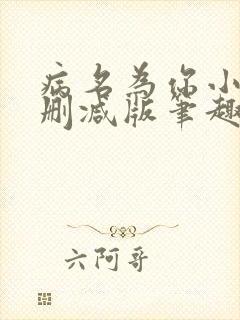 病名为你小
删减版笔趣
六阿哥